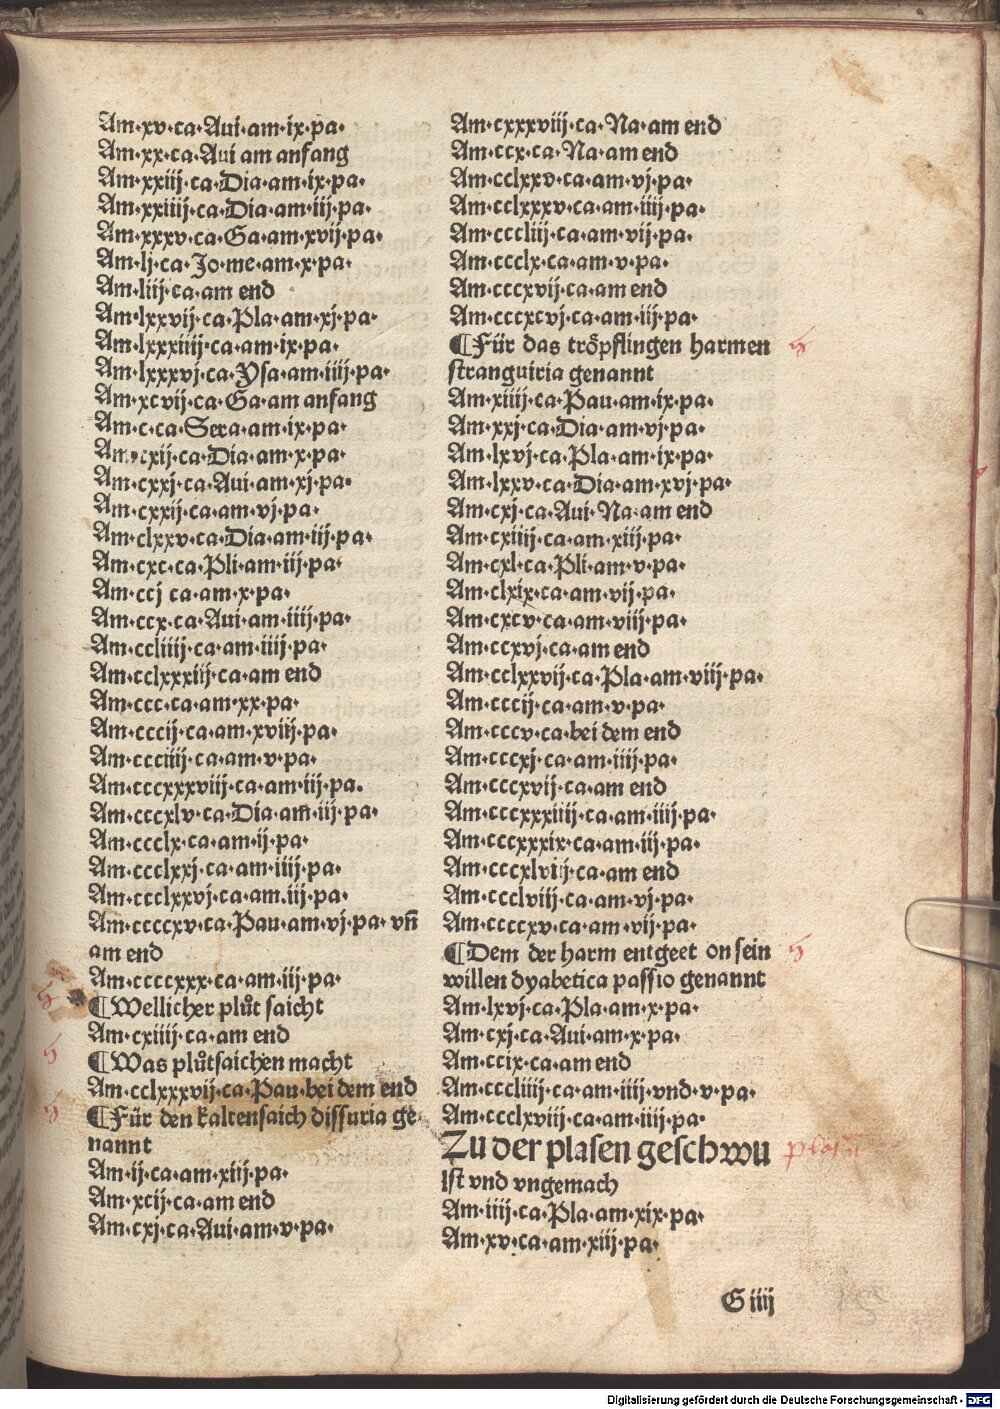 Am·xv·ca·Aui·am·ix·pa·
Am·xx·ca·Aui am anfang
Am·xxiij·ca·Dia·am·ix·pa·
Am·xxiiij·ca·Dia·am·iij·pa·
Am·xxxv·ca·Ga·am·xvij·pa·
Am·lj·ca·Jo·me·am·x·pa·
Am·liij·ca·am end
Am·lxxvij·ca·Pla·am·xj·pa·
Am·lxxxiiij·ca·am·ix·pa·
Am·lxxxvj·ca·Ysa·am·iiij·pa·
Am·xcvij·ca·Ga·am anfang
Am·c·ca·Sera·am·ix·pa·
Am·cxij·ca·Dia·am·x·pa·
Am·cxxj·ca·Aui·am·xj·pa·
Am·cxxij·ca·am·vj·pa·
Am·clxxv·ca·Dia·am·iij·pa·
Am·cxc·ca·Pli·am·iij·pa·
Am·ccj ca·am·x·pa·
Am·ccx·ca·Aui·am·iiij·pa·
Am·ccliiij·ca·am·iiij·pa·
Am·cclxxxiij·ca·am end
Am·ccc·ca·am·xx·pa·
Am·cccij·ca·am·xviij·pa·
Am·ccciiij·ca·am·v·pa·
Am·cccxxxviij·ca·am·iij·pa·
Am·cccxlv·ca·Dia·am·iij·pa·
Am·ccclx·ca·am·ij·pa·
Am·ccclxxj·ca·am·iiij·pa·
Am·ccclxxvj·ca·am·iij·pa·
Am·ccccxv·ca·Pau·am·vj·pa·vn̄
am end
Am·ccccxxx·ca·am·iij·pa·
¶Wellicher plůt saicht
Am·cxiiij·ca·am end
¶Was plůtsaichen macht
Am·cclxxxvij·ca·Pau·bei dem end
¶Für den kaltensaich dissuria ge-
nannt
Am·ij·ca·am·xiij·pa·
Am·xcij·ca·am end
Am·cxj·ca·Aui·am·v·pa·
Am·cxxxviij·ca·Na·am end
Am·ccx·ca·Na·am end
Am·cclxxv·ca·am·vj·pa·
Am·cclxxxv·ca·am·iiij·pa·
Am·cccliij·ca·am·vij·pa·
Am·ccclx·ca·am·v·pa·
Am·cccxvij·ca·am end
Am·cccxcvj·ca·am·iij·pa·
¶Für das tröpflingen harmen
stranguiria genannt
Am·xiiij·ca·Pau·am·ix·pa·
Am·xxj·ca·Dia·am·vj·pa·
Am·lxvj·ca·Pla·am·ix·pa·
Am·lxxv·ca·Dia·am·xvj·pa·
Am·cxj·ca·Aui·Na·am end
Am·cxiiij·ca·am·xiij·pa·
Am·cxl·ca·Pli·am·v·pa·
Am·clxix·ca·am·vij·pa·
Am·cxcv·ca·am·viij·pa·
Am·ccxvj·ca·am end
Am·cclxxvij·ca·Pla·am·viij·pa·
Am·cccij·ca·am·v·pa·
Am·cccv·ca·bei dem end
Am·cccxj·ca·am·iiij·pa·
Am·cccxvij·ca·am end
Am·cccxxxiiij·ca·am·iiij·pa·
Am·cccxxxix·ca·am·iij·pa·
Am·cccxlviij·ca·am end
Am·ccclviij·ca·am·vj·pa·
Am·ccccxv·ca·am·vij·pa·
¶Dem der harm entgeet on sein
willen dyabetica passio genannt
Am·lxvj·ca·Pla·am·x·pa·
Am·cxj·ca·Aui·am·x·pa·
Am·ccix·ca·am end
Am·cccliiij·ca·am·iiij·vnd·v·pa·
Am·ccclxviij·ca·am·iiij·pa·
Zu der plasen geschwu
lst vnd vngemach
Am·iiij·ca·Pla·am·xix·pa·
Am·xv·ca·am·xiij·pa·
G iiij
Digitalisierung gefördert durch die Deutsche Forschungsgemeinschaft - DFG